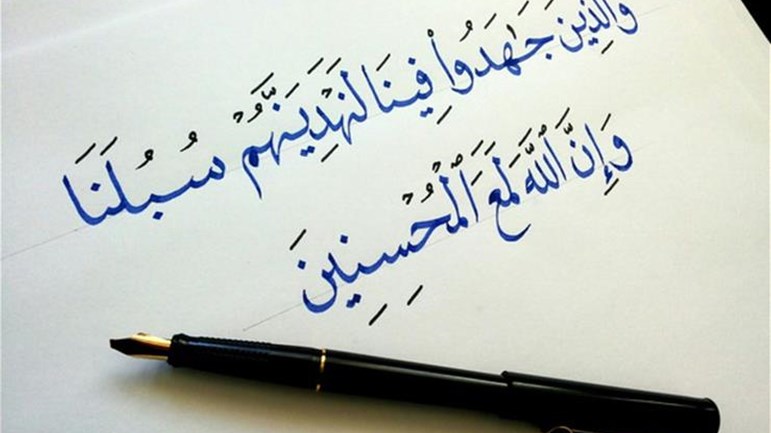 وَالَّذِينَ جَٰهَدُوا۟ فِينَا لَنَهْدِيَنَّهُمْ سُبُلَنَا
وَإِنَّ ٱللَّهَ لَمَعَ ٱلْمُحْسِنِينَ